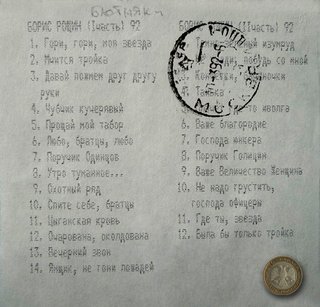 БОРИС РОЩИН (Iчасть) 92
1. Гори, гори, моя звезда
2. Мчится тройка
3. Давай пожмем друг другу
руки
4. Чубчик кучерявый
5. Прощай мой табор
6. Любо, братцы, любо
7. Поручик Одинцов
8. Утро туманное...
9. Охотный ряд
10. Спите себе, братцы
11. Цыганская кровь
12. Очарована, околдована
13. Вечерний звон
14. Ямщик, не гони лошадей
БОРИС (IIчасть) 92
1. изумруд
2. со мной
3.
4. Танька
5. иволга
6. Ваше благородие
7. Господа юнкера
8. Поручик Голицын
9. Ваше Величество Женщина
10. Не надо грустить,
господа офицеры
11. Где ты, звезда
12. Была бы только тройка